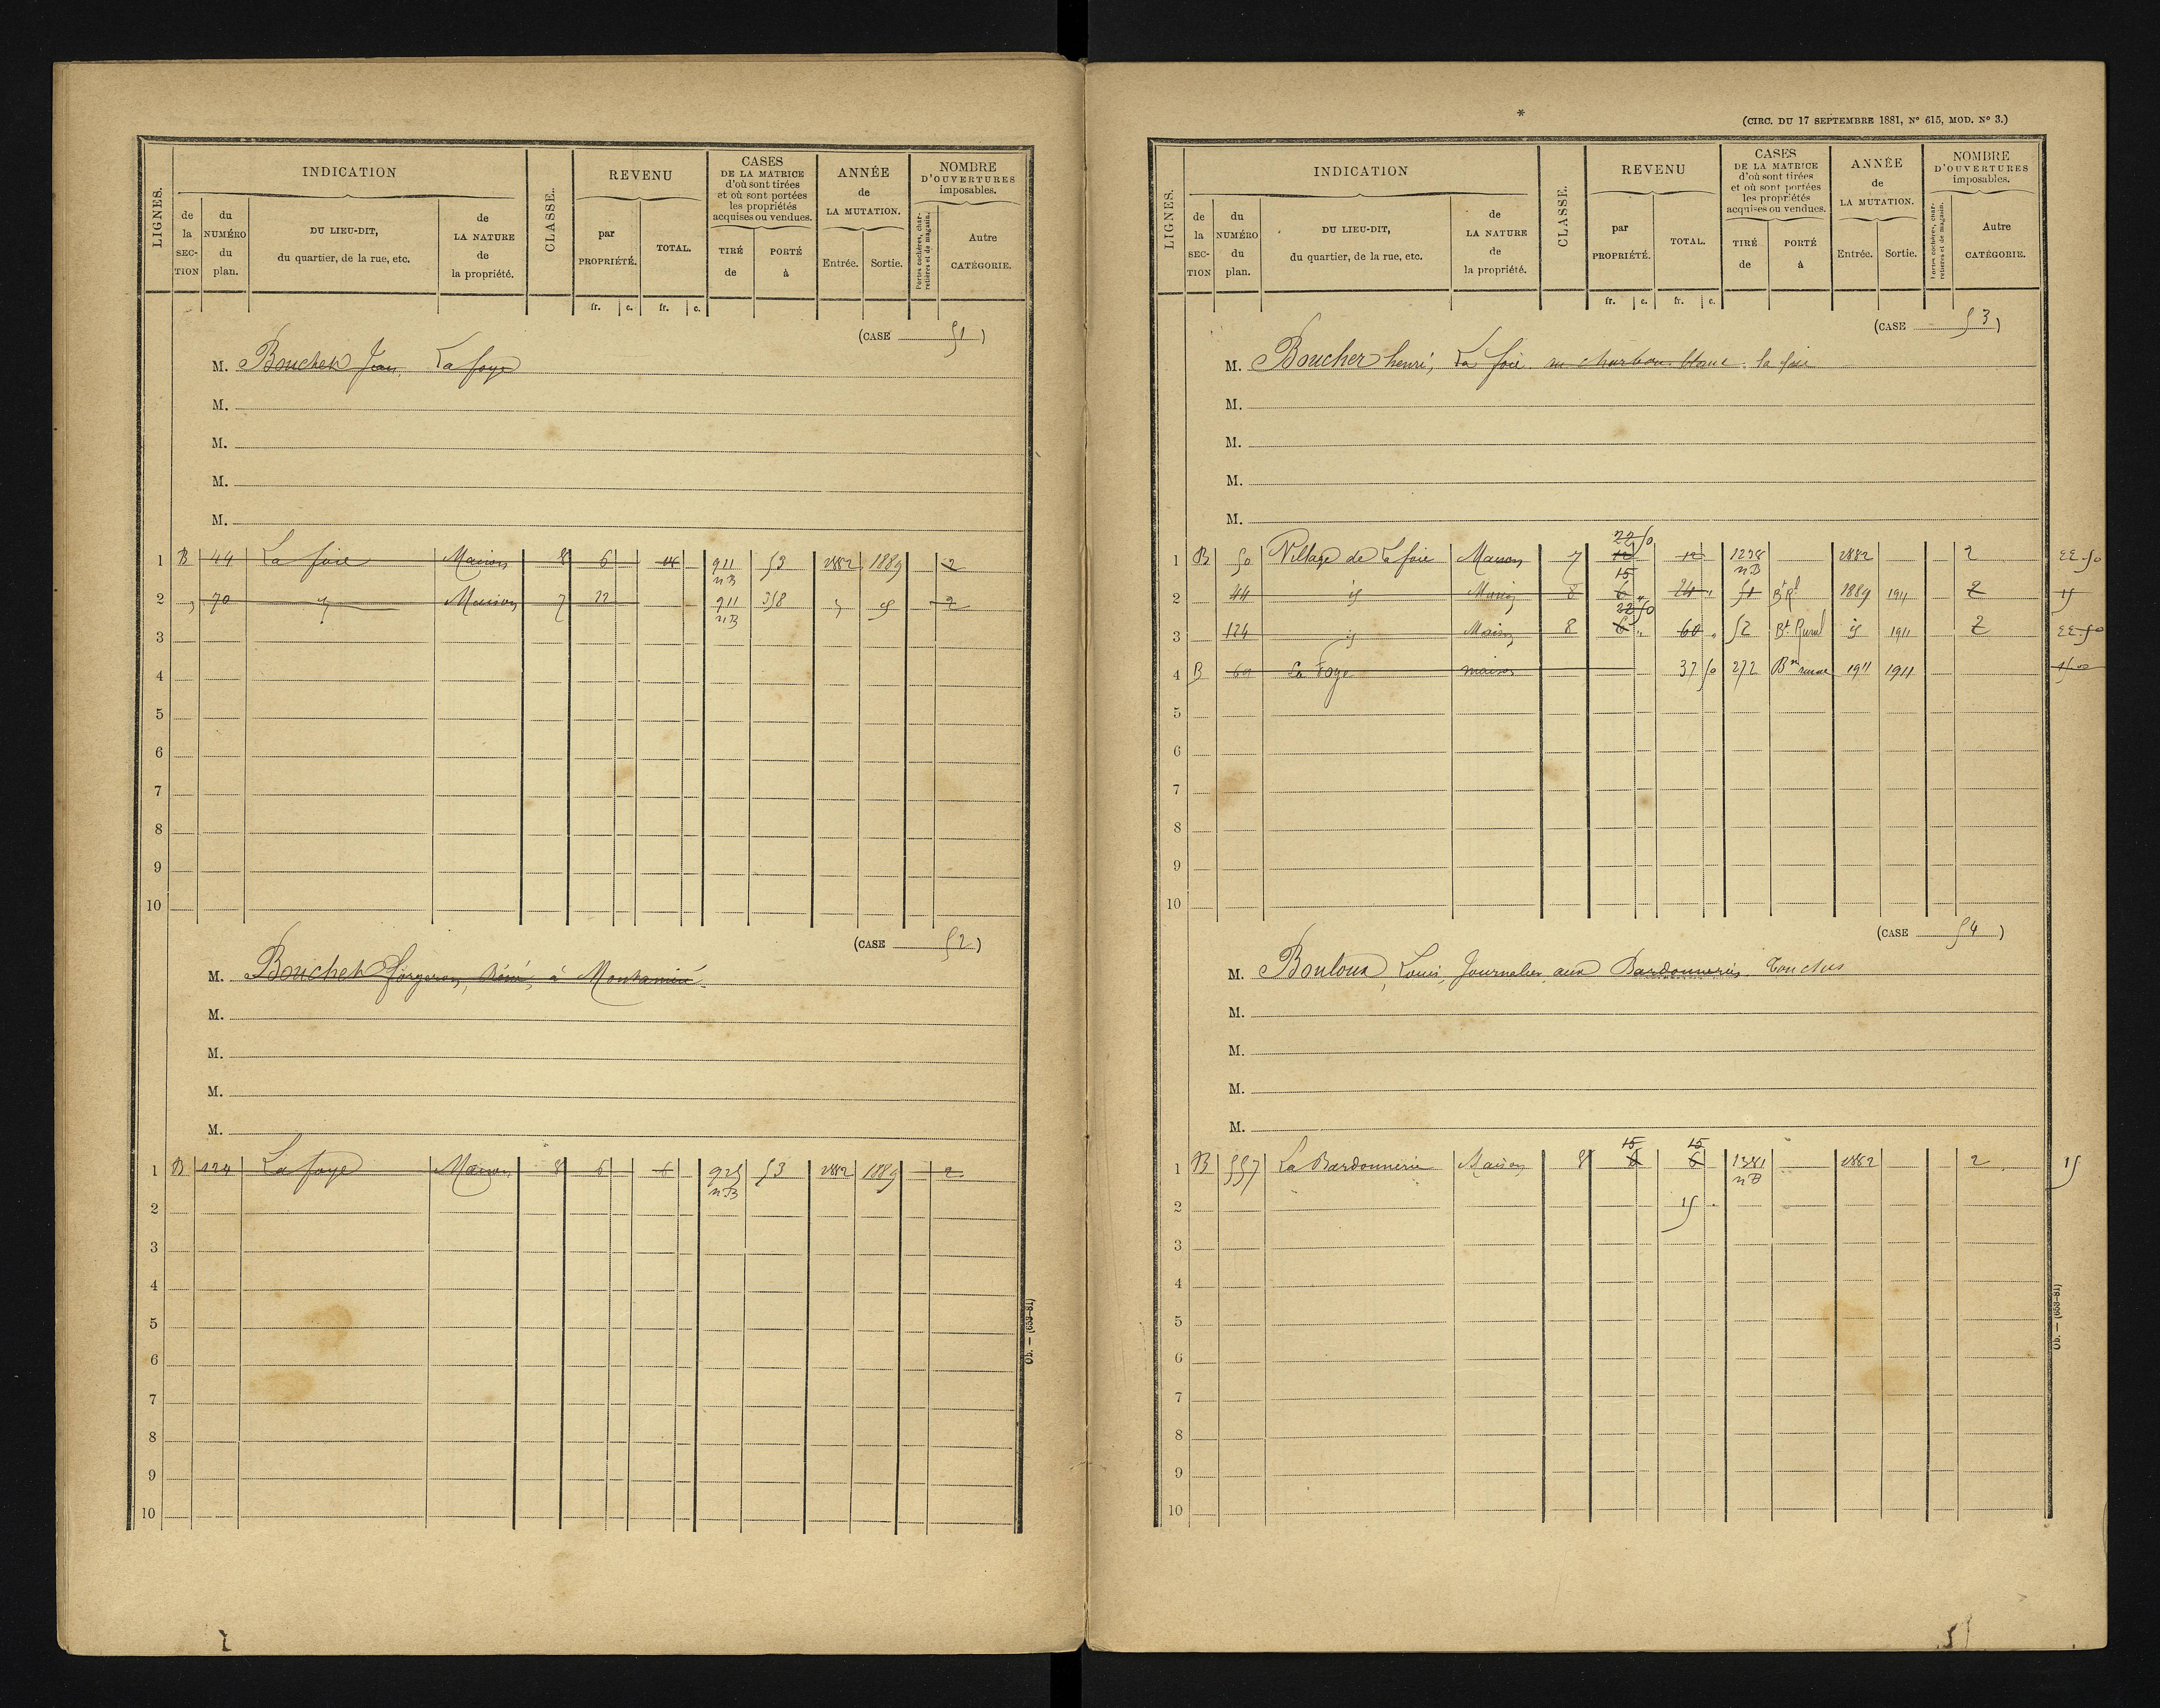 INDICATION
CLASSE.
REVENU
CASES
DE LA MATRICE
d'où sont tirées
et où sont portées
les propriétés
acquises ou vendues.
ANNÉE
de
LA MUTATION.
NOMBRE
D'OUVERTURES
imposables.
LIGNES.
de la SECTION
du NUMÉRO du plan.
DU LIEU-DIT,
du quartier, de la rue, etc.
de LA NATURE de la propriété.
par PROPRIÉTÉ.
TOTAL.
TIRÉ de
PORTÉ à
Entrée.
Sortie.
Portes cochères, charretières et de magasin.
Autre CATÉGORIE.
fr. c. fr. c.
(CASE 51)
M. Boucher Jean, La foye
M.
M.
M.
M.
1 B 44 La foie Maison 8 6 911 nB 53 1882 1889 2
2 " 70 " Maison 7 12 911 nB 358 " " 2
3
4
5
6
7
8
9
10
(CASE 52)
M. Boucher forgeron, à
M.
M.
M.
M.
1 B 124 La foye Maison 8 6 6 925 nB 53 1882 1889 2
2
3
4
5
6
7
8
9
10
Ob. — (653-81)
*
(CIRC. DU 17 SEPTEMBRE 1881, N° 615, MOD. N° 3.)
INDICATION
CLASSE.
REVENU
CASES
DE LA MATRICE
d'où sont tirées
et où sont portées
les propriétés
acquises ou vendues.
ANNÉE
de
LA MUTATION.
NOMBRE
D'OUVERTURES
imposables.
LIGNES.
de la SECTION
du NUMÉRO du plan.
DU LIEU-DIT,
du quartier, de la rue, etc.
de LA NATURE de la propriété.
par PROPRIÉTÉ.
TOTAL.
TIRÉ de
PORTÉ à
Entrée.
Sortie.
Portes cochères, charretières et de magasin.
Autre CATÉGORIE.
fr. c. fr. c.
(CASE 53)
M. Boucher henri, La foie au charbon blanc la foie
M.
M.
M.
M.
22 50
1 B 50 Village de La foie Maison 7 12 12 1238 nB 1882 2 22.50
15
2 44 id Maison 8 6 " 24 " 51 Bt Rl 1889 1911 2 15
22 50
3 124 id Maison 8 6 " 60 " 52 Bt Rural id 1911 2 22.50
4 B 60 La Foye maison 37 50 272 1911 1911
5
6
7
8
9
10
(CASE 54)
M. Bouloux, Louis, Journalier aux Bardonneries
M.
M.
M.
M.
15 15
1 B 557 La Bardonnerie Maison 8 6 6 1381 nB 1882 2 15
2 15
3
4
5
6
7
8
9
10
Ob. — (653-81)